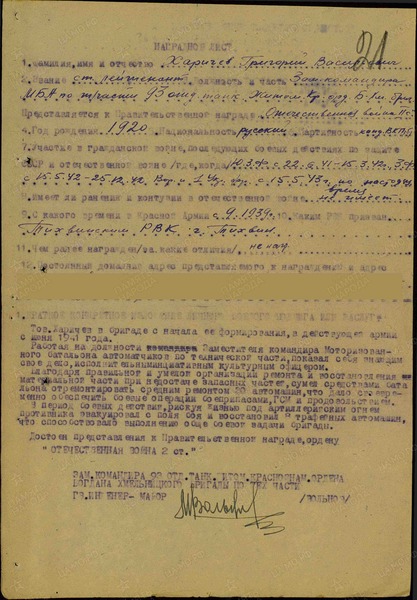 31
НАГРАДНОЙ ЛИСТ
1. Фамилия, имя и отчество Харичев Григорий Васильевич
2. Звание ст. лейтенант Должность и часть Зам командира
МБА по тех части 93 отд танк. Житом. Кр. бриг. Б. Хм.
Представляется к Правительственной награде Отечественная война IIст
4. Год рождения 1920 Национальность русский Партийность канд. ВКП/б
7. Участие в гражданской войне, последующих боевых действиях по защите
СССР и отечественной войне /где, когда/ Ю.З.Ф. с 22.6.41-15.3.42.
с 15.5.42-25.12.42 Вор. и 1 Укр. фр. с 15.5.43г. по настоящ
время
8. Имеет ли ранения и контузии в отечественной войне не имеет
9. С какого времени в Красной Армии с 9.1939г. 10. Каким РВК призван
Тихвинским РВК г. Тихвин
11. Чем ранее награжден /за какие отличия/ не наг.
12. Постоянный домашний адрес представляемого к награждению и адрес
Тов. Харичев в бригаде с начала ее формирования, в действующей армии
с июня 1941 года.
Работая на должности Заместителя командира Моторизован-
ного батальона автоматчиков по технической части, показал себя знающим
свое дело, исполнительным, инициативным культурным офицером.
Благодаря правильной и умелой организации ремонта и восстановления
материальной части при недостаче запасных частей, сумел средствами бата
льона отремонтировать средним ремонтом 20 автомашин, что дало своевре-
менно обеспечить боевые операции боеприпасами, ГСМ и продовольствием.
В период боевых действий, рискуя жизнью под артиллерийским огнем
противника эвакуировал с поля боя и восстановил 9 трофейных автомашин,
что способствовало выполнению общей боевой задачи бригады.
Достоен представления к Правительственной награде, ордену
"ОТЕЧЕСТВЕННАЯ ВОЙНА 2 ст."
ЗАМ. КОМАНДИРА 93 ОТД. ТАНК. ЖИТОМ. КРАСНОЗНАМ. ОРДЕНА
БОГДАНА ХМЕЛЬНИЦКОГО БРИГАДЫ ПО ТЕХ ЧАСТИ
ГВ. ИНЖЕНЕР-МАЙОР /ВОЛЬНОВ/